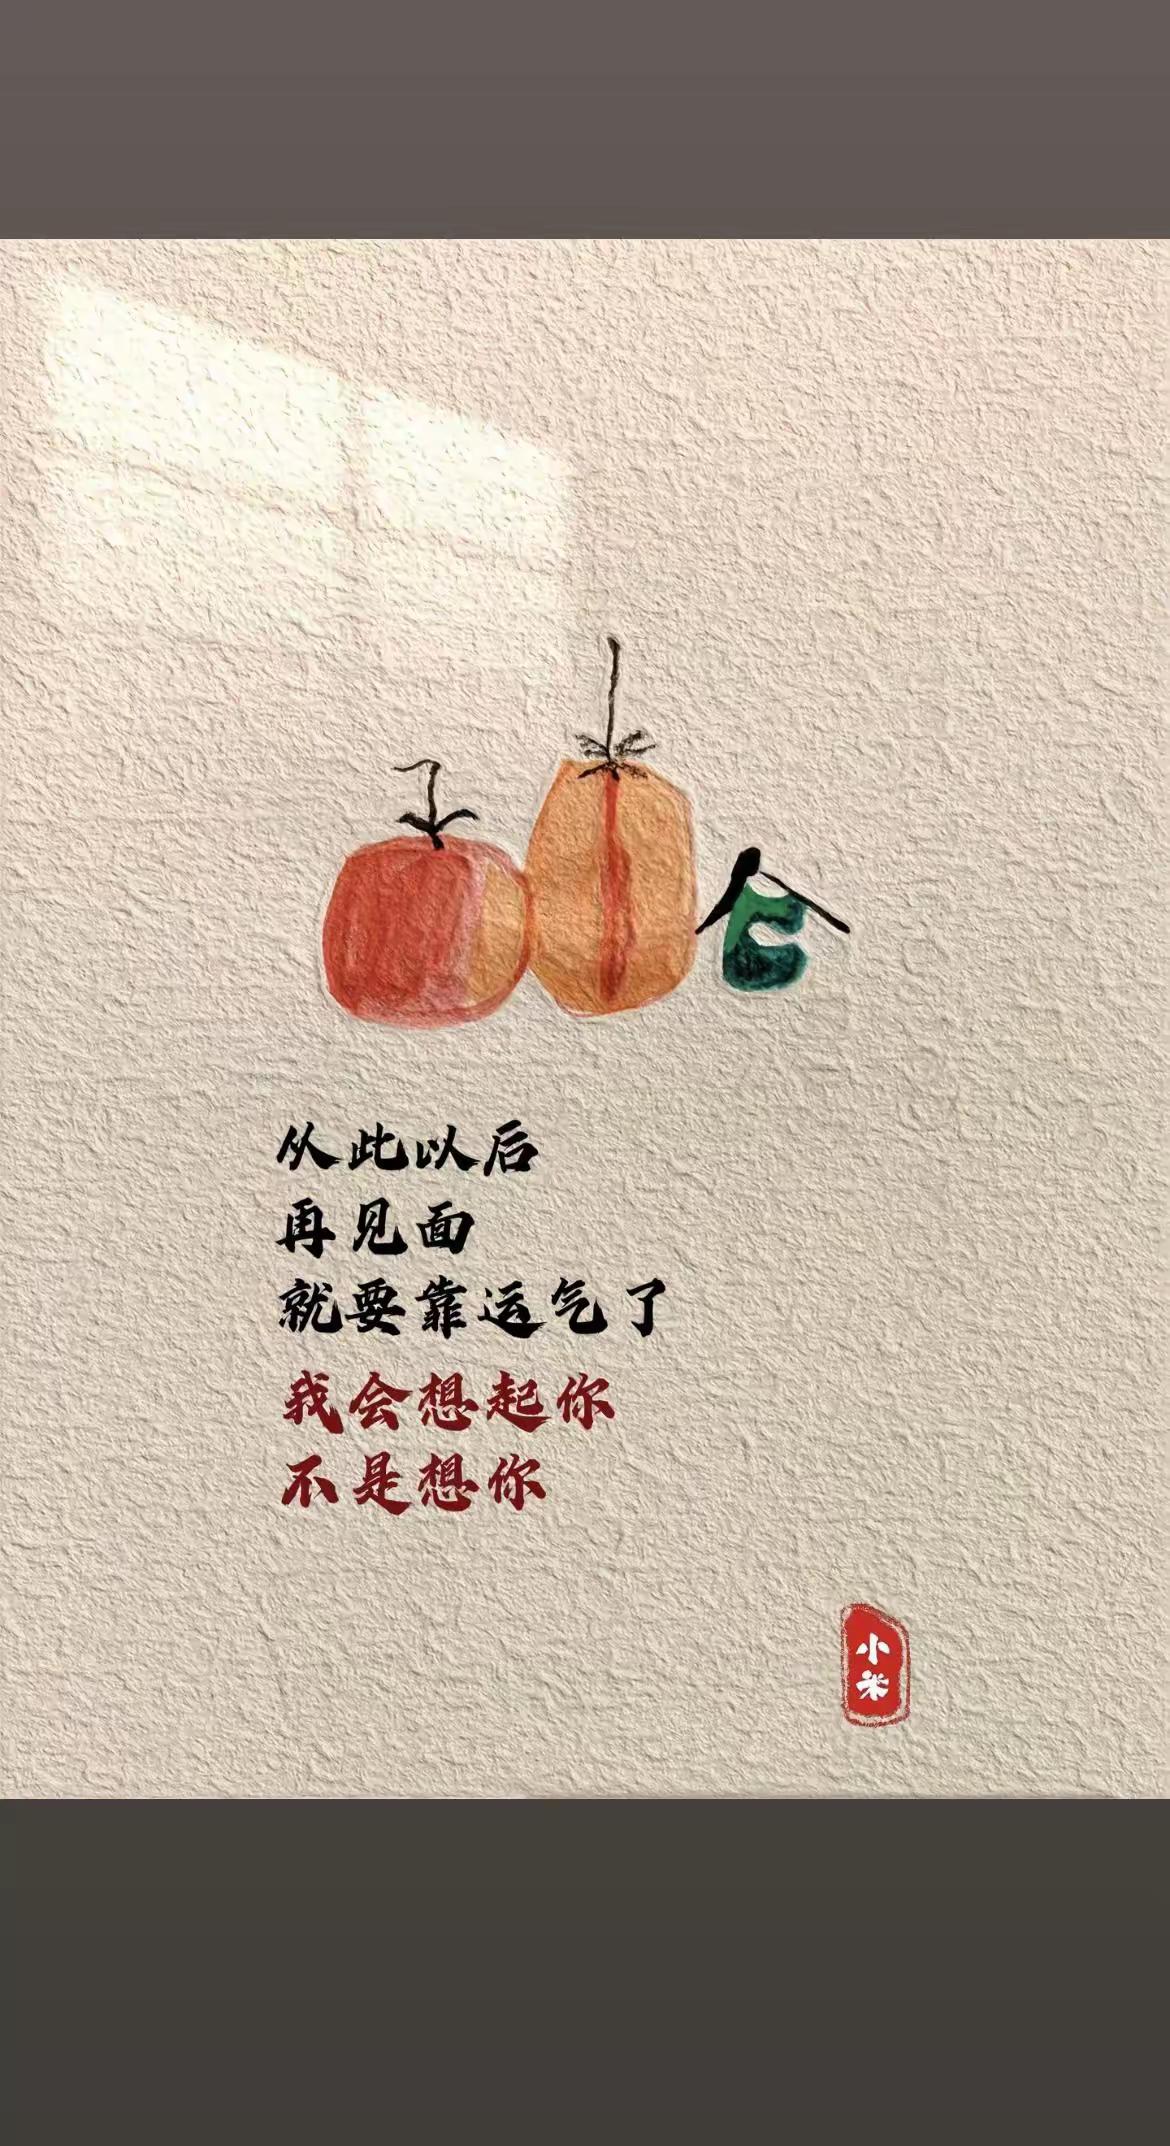 从此以后
再见面
就要靠运气了
我会想起你
不是想你
小
米